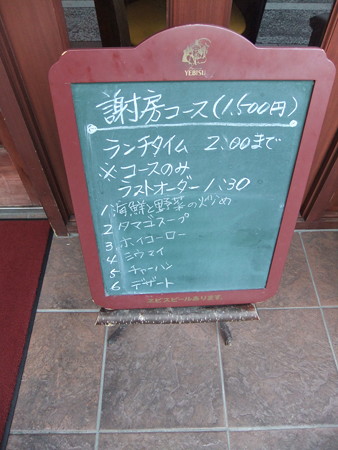 YEBISU
謝房コース(1,500円)
ランチタイム 2:00まで
※コースのみ
ラストオーダー1:30
1 海鮮と野菜の炒め
2 タマゴスープ
3 ホイコーロー
4 シウマイ
5 チャーハン
6 デザート
ヱビスビールあります。